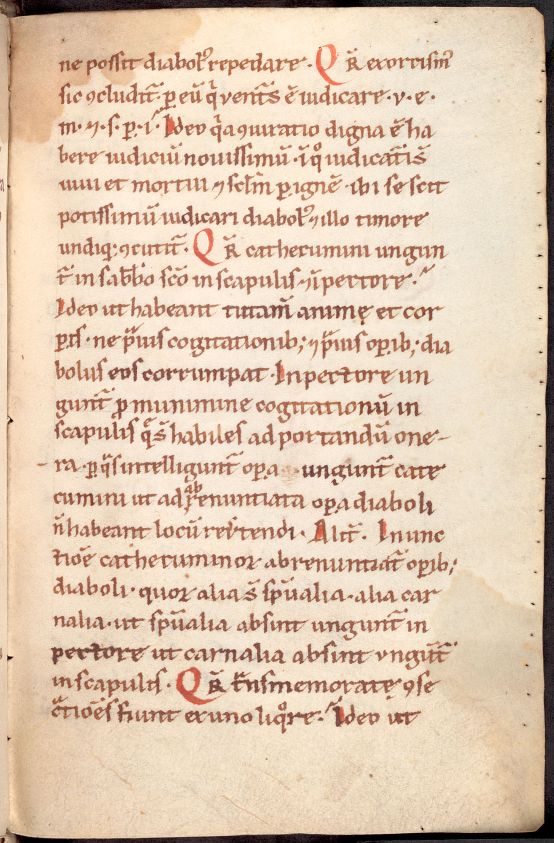 ne possit diabol᷒ repedare · Q R̄ exorcism᷒
sic ꝯcludit᷑ · ꝑ eū q̇ vent᷒s ē iudicare · v · e ·
m · ⁊ · s · ꝑ · i · Ideo q̇a ꝯiuratio digna ē ha
bere iudiciū nouissimū · ī q̊ iudicat᷒is
uiui et mortui ⁊ scl̄m ꝑ ignē · ibi se scit
potissimū iudicari diabol᷒ ⁊ illo timore
undiq; ꝯcutit᷑ · Q R̄ cathecumini ungun
t᷑ in sabb̄o sc̄o in scapulis ⁊ ī pectore ·
Ideo ut habeant tutam̄ animę et cor
ꝑis · ne p̄uis cogitationib; ⁊ p̄uis oꝑib; dia
bolus eos corrumpat · In pectore un
gunt᷑ ꝓ munimine cogitationū in
scapulis q̊s habiles ad portandū one-
ra · ꝑ q̄s intelligunt᷑ oꝑa ungunt᷑ cate
cumini ut ad abrenuntiata oꝑa diaboli
n̄ habeant locū reu᷑tendi · Alit᷑ · In unc
tiōe cathecuminor abrenuntiat᷑ oꝑib;
diaboli · quor alia s̄ sp̄ualia · alia car
nalia · ut sp̄ualia absint ungunt᷑ in
pectore ut carnalia absint vngūt᷑
in scapulis · Q R̄ t᷑ns memoratę ꝯse
c᷑tiōes fiunt ex uno liq̊re · Ideo ut